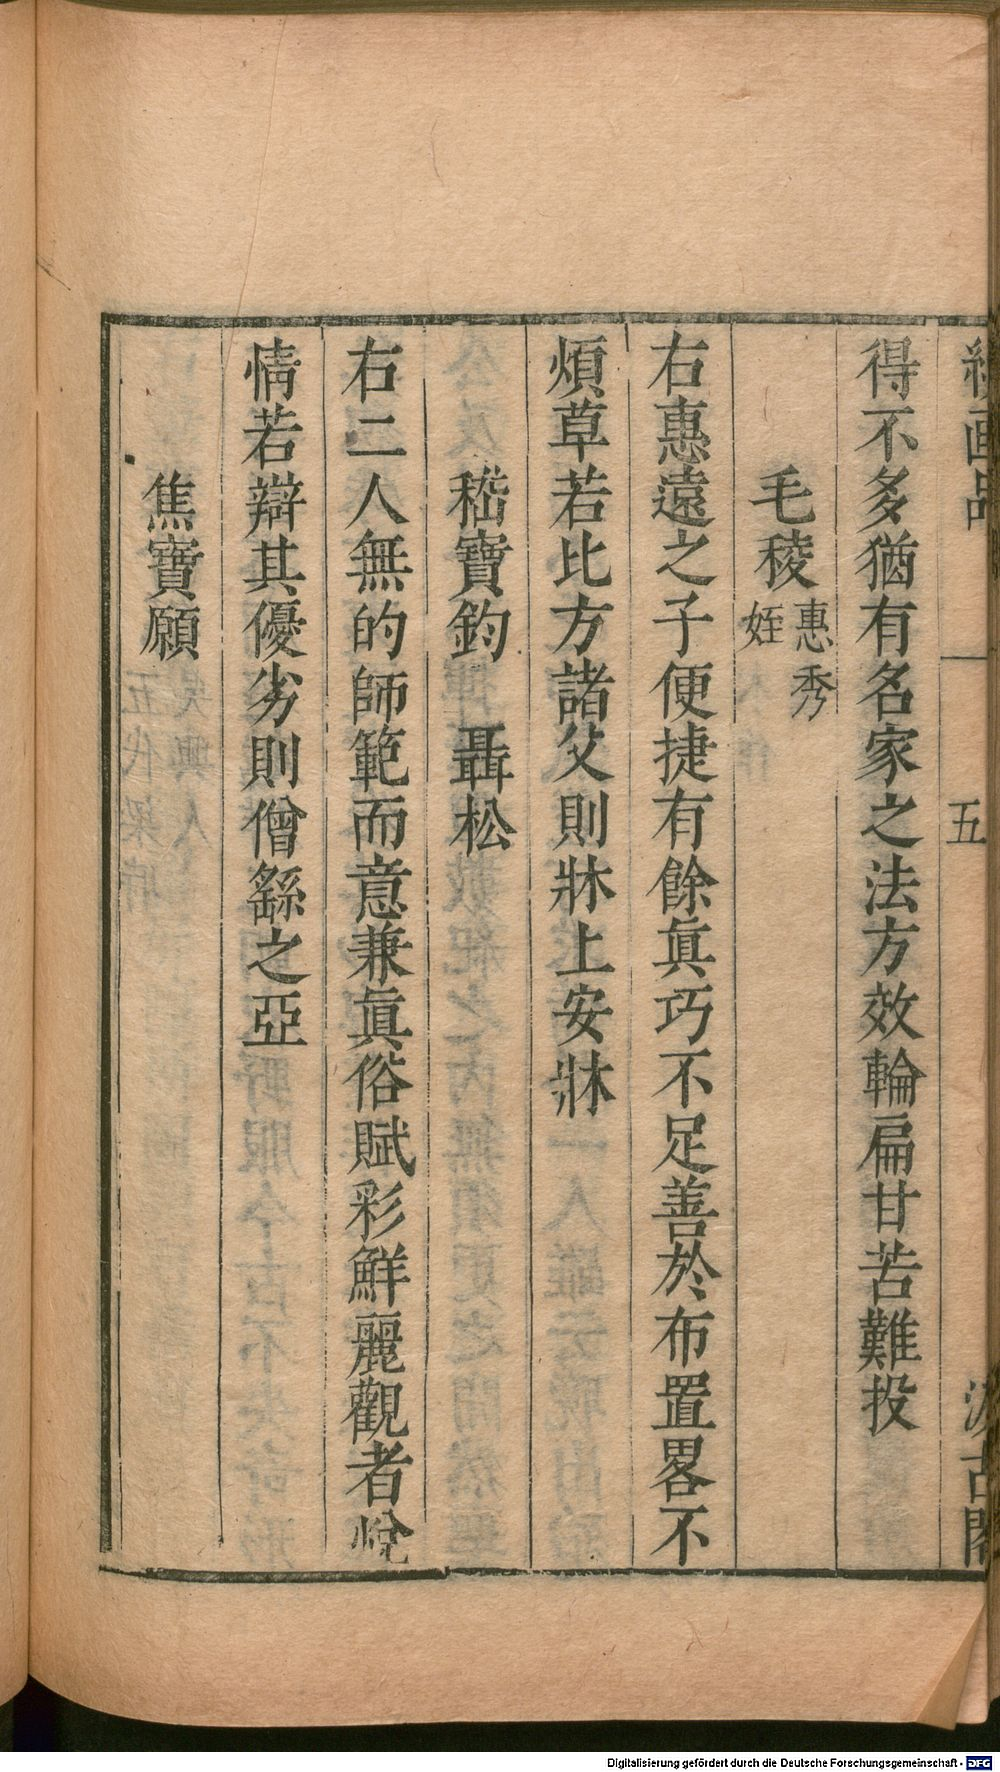 續畫品 五 汲古閣
得不多猶有名家之法方效輪扁甘苦難投
毛稜惠秀姪
右惠遠之子便捷有餘眞巧不足善於布置畧不
煩草若比方諸父則牀上安牀
嵇寶鈞 聶松
右二人無的師範而意兼眞俗賦彩鮮麗觀者悅
情若辯其優劣則僧繇之亞
焦寶願
Digitalisierung gefördert durch die Deutsche Forschungsgemeinschaft - DFG